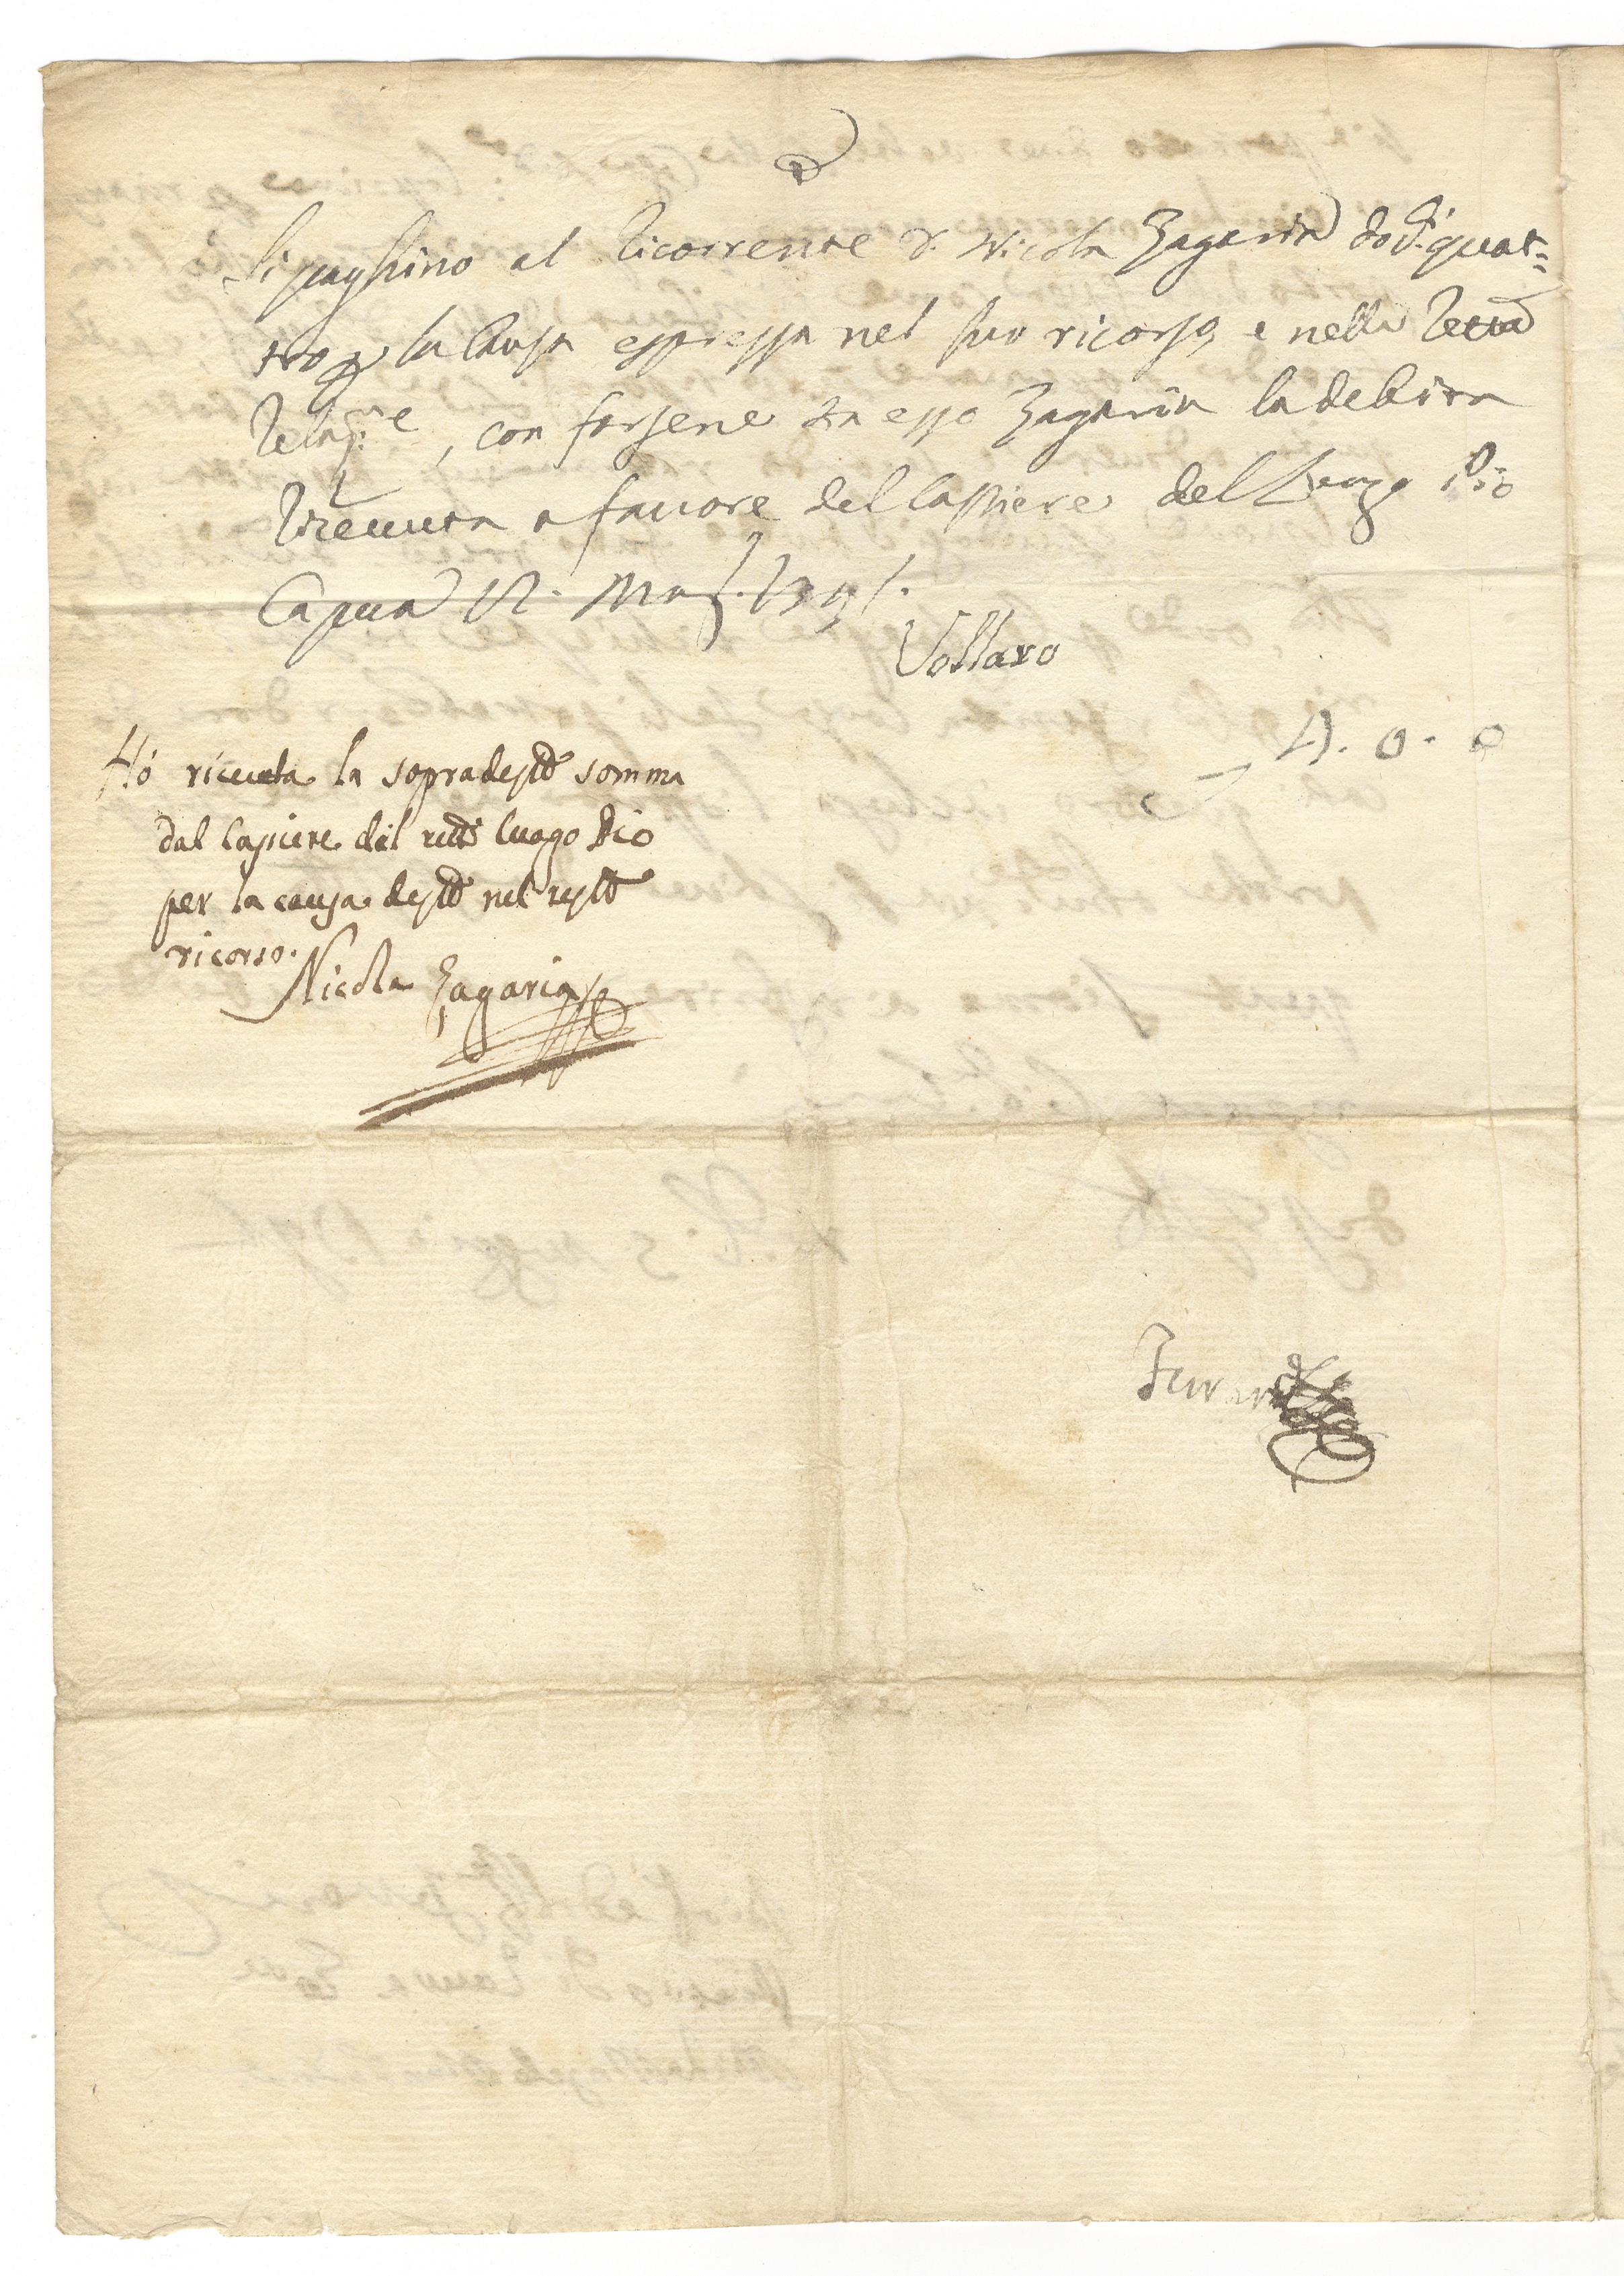 Si paghino al Ricorrente D. Nicola Zagaria doc.ti quat=
tro per la causa espressa nel suo ricorso, e nella retta
relaz.ne, con farsene da esso Zagaria la debita
ricevuta a favore del Cassiere del Luogo Pio
Capua 12. Mag. 1791.
Vollaro
4. 0. 0
Hó riceuta la sopradetta somma
dal Cassiere del Luogo Pio
per la causa detta nel
ricorso.
Nicola Zagaria